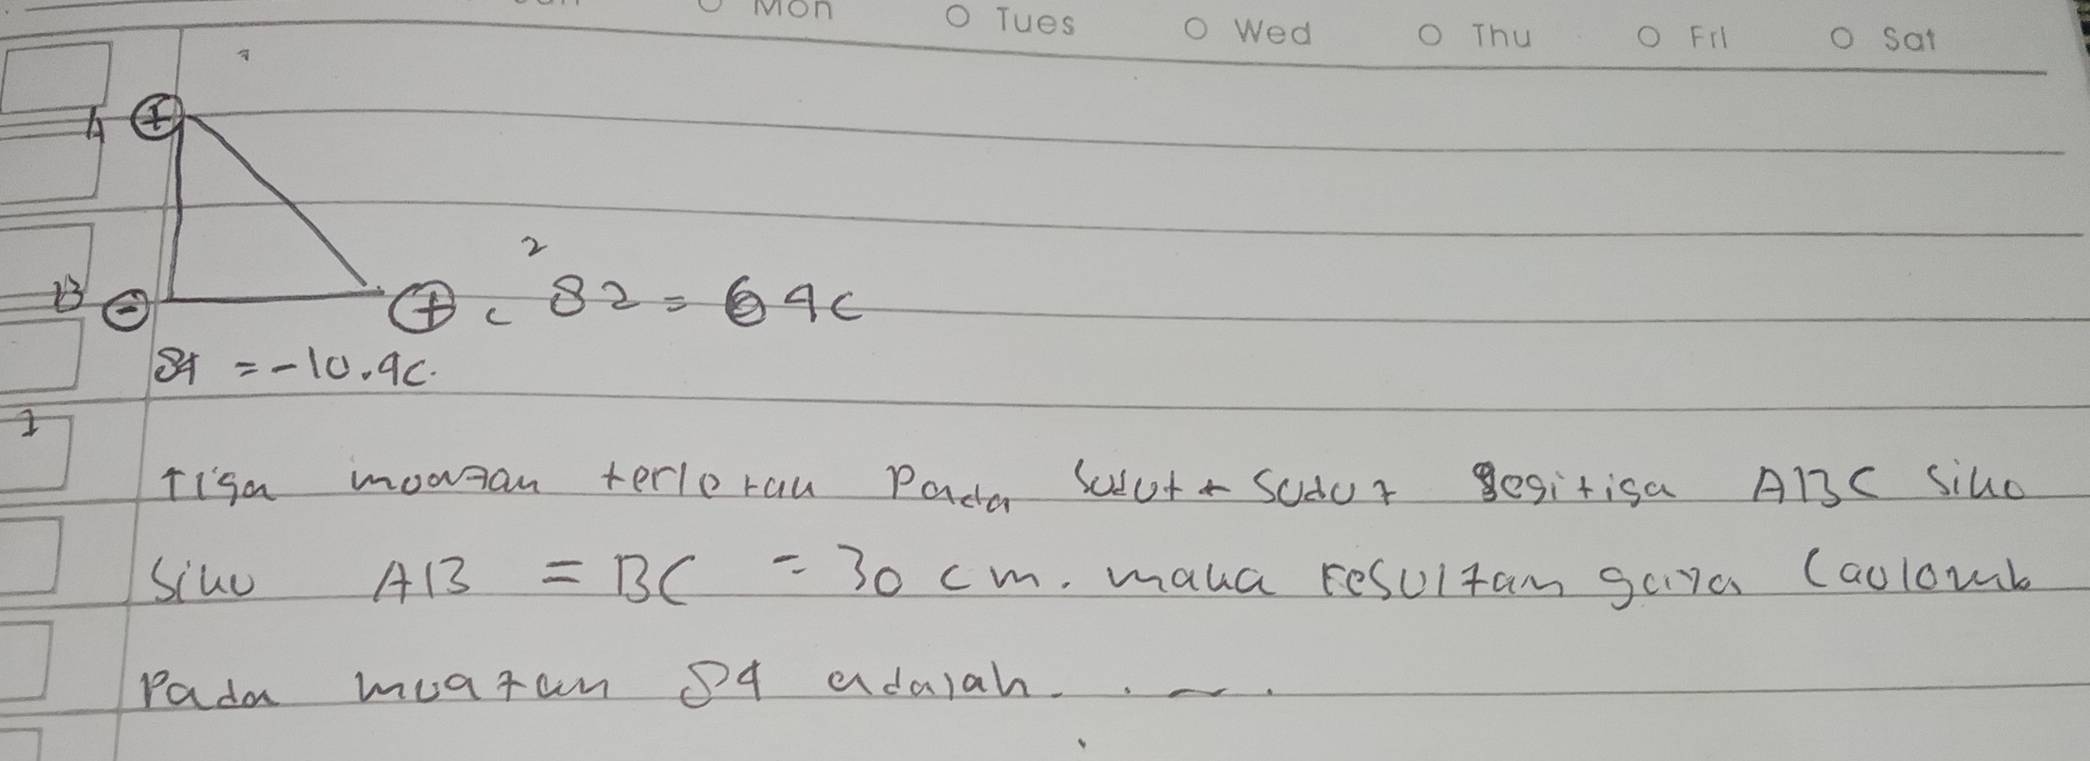 Mon Tues Wed Thu Fri Sat
A +
2
B - + c 82 = 64c
84 = -10.4c.
1
Tiga muatan terletak Pada Sudut + Sudut Segitiga ABC Siku
Siku AB = BC = 30 cm. maka resultan gaya Caulomb
Pada muatan 84 adalah. . - .